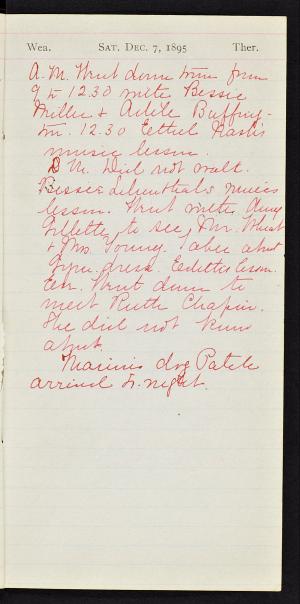 Wea. SAT. DEC. 7, 1895 Ther.
A.M. Went down town from
9 to 12.30 with Bessie
Miller & Adele Buffing-
ton. 12.30 Ethel
music lesson.
P M. Did not walk.
Bessie Lilienthal's music
lesson. Went with Amy
Gillette to see Mr. Wheat
& Mrs. Young. Also about
Gym. dress. lesson.
Eve. Went down to
meet Ruth Chapin.
She did not
dog Patch
arrived to-night.